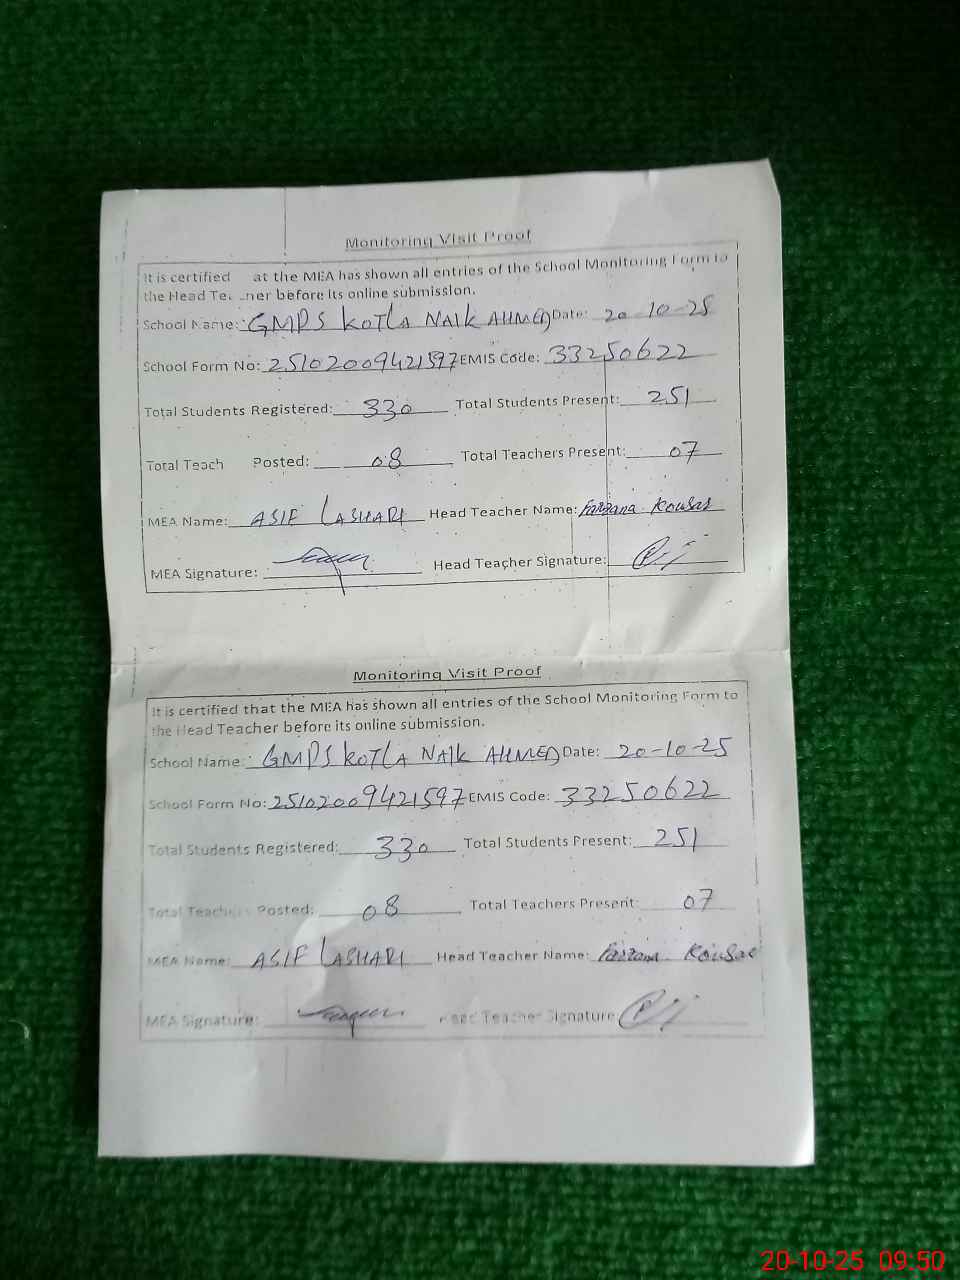 Monitoring Visit Proof
It is certified at the MEA has shown all entries of the School Monitoring Form to
the Head Te ner before its online submission.
School Name: GMPS KOTLA NAIK AHMED Date: 20-10-25
School Form No: 25102009421597 EMIS Code: 33250622
Total Students Registered: 330 Total Students Present: 251
Total Teach Posted: 08 Total Teachers Present: 07
MEA Name: ASIF LASHARI Head Teacher Name: Farzana Kousar
MEA Signature: Head Teacher Signature:
Monitoring Visit Proof
It is certified that the MEA has shown all entries of the School Monitoring Form to
the Head Teacher before its online submission.
School Name: GMPS KOTLA NAIK AHMED Date: 20-10-25
School Form No: 25102009421597 EMIS Code: 33250622
Total Students Registered: 330 Total Students Present: 251
Total Teachers Posted: 08 Total Teachers Present: 07
MEA Name: ASIF LASHARI Head Teacher Name: Farzana Kousar
MEA Signature: Head Teacher Signature:
20-10-25 09:50